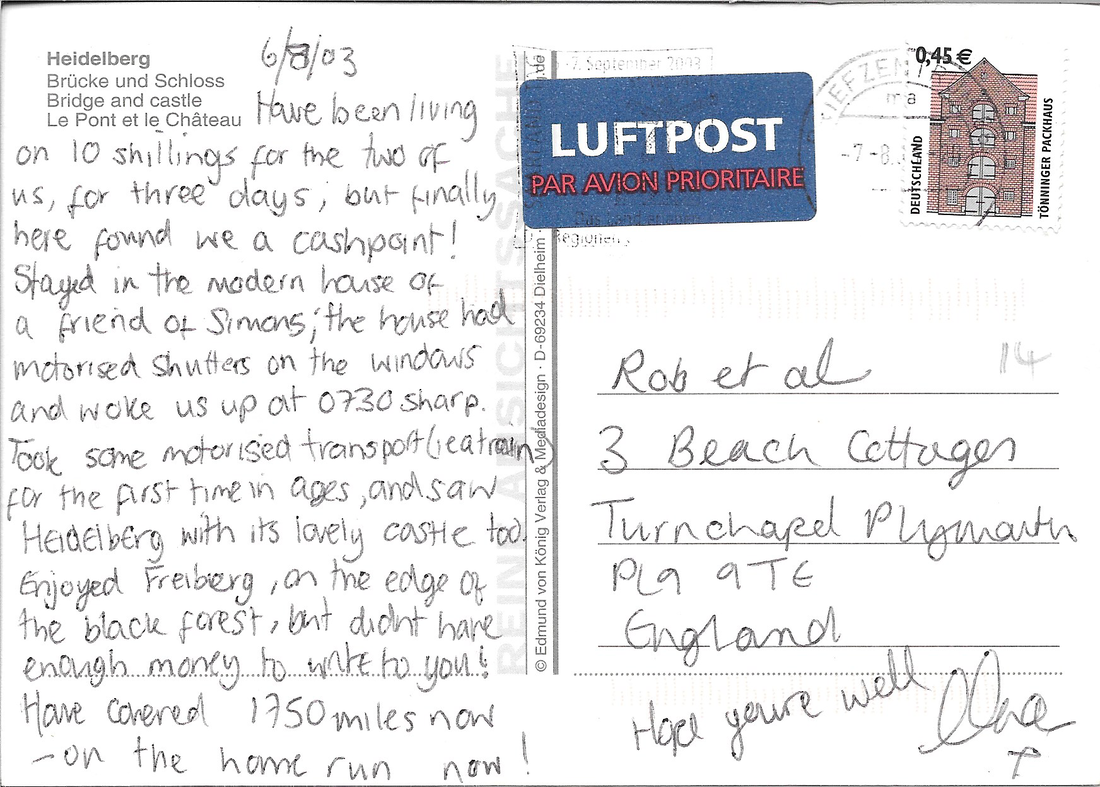 Heidelberg
Brücke und Schloss
Bridge and castle
Le Pont et le Château
6/8/03
Have been living
on 10 shillings for the two of
us, for three days, but finally
here found we a cashpoint!
Stayed in the modern house of
a friend of Simons, the house had
motorised shutters on the windows
and woke us up at 0730 sharp.
Took some motorised transport
for the first time in ages, and saw
Heidelberg with its lovely castle too.
Enjoyed Freiberg, on the edge of
the black forest, but didnt have
enough money to write to you!
Have covered 1750 miles now
- on the home run now!
REINE ANSICHTSSACHE
© Edmund von König Verlag & Mediadesign · D-69234 Dielheim
.de
-7. September 2003
LUFTPOST
PAR AVION PRIORITAIRE
Regionen
IEFZENT
ma
-7-8.
0,45 €
DEUTSCHLAND
TÖNNINGER PACKHAUS
14
Rob et al
3 Beach Cottages
Turnchapel Plymouth
PL9 9TE
England
Hope youre well